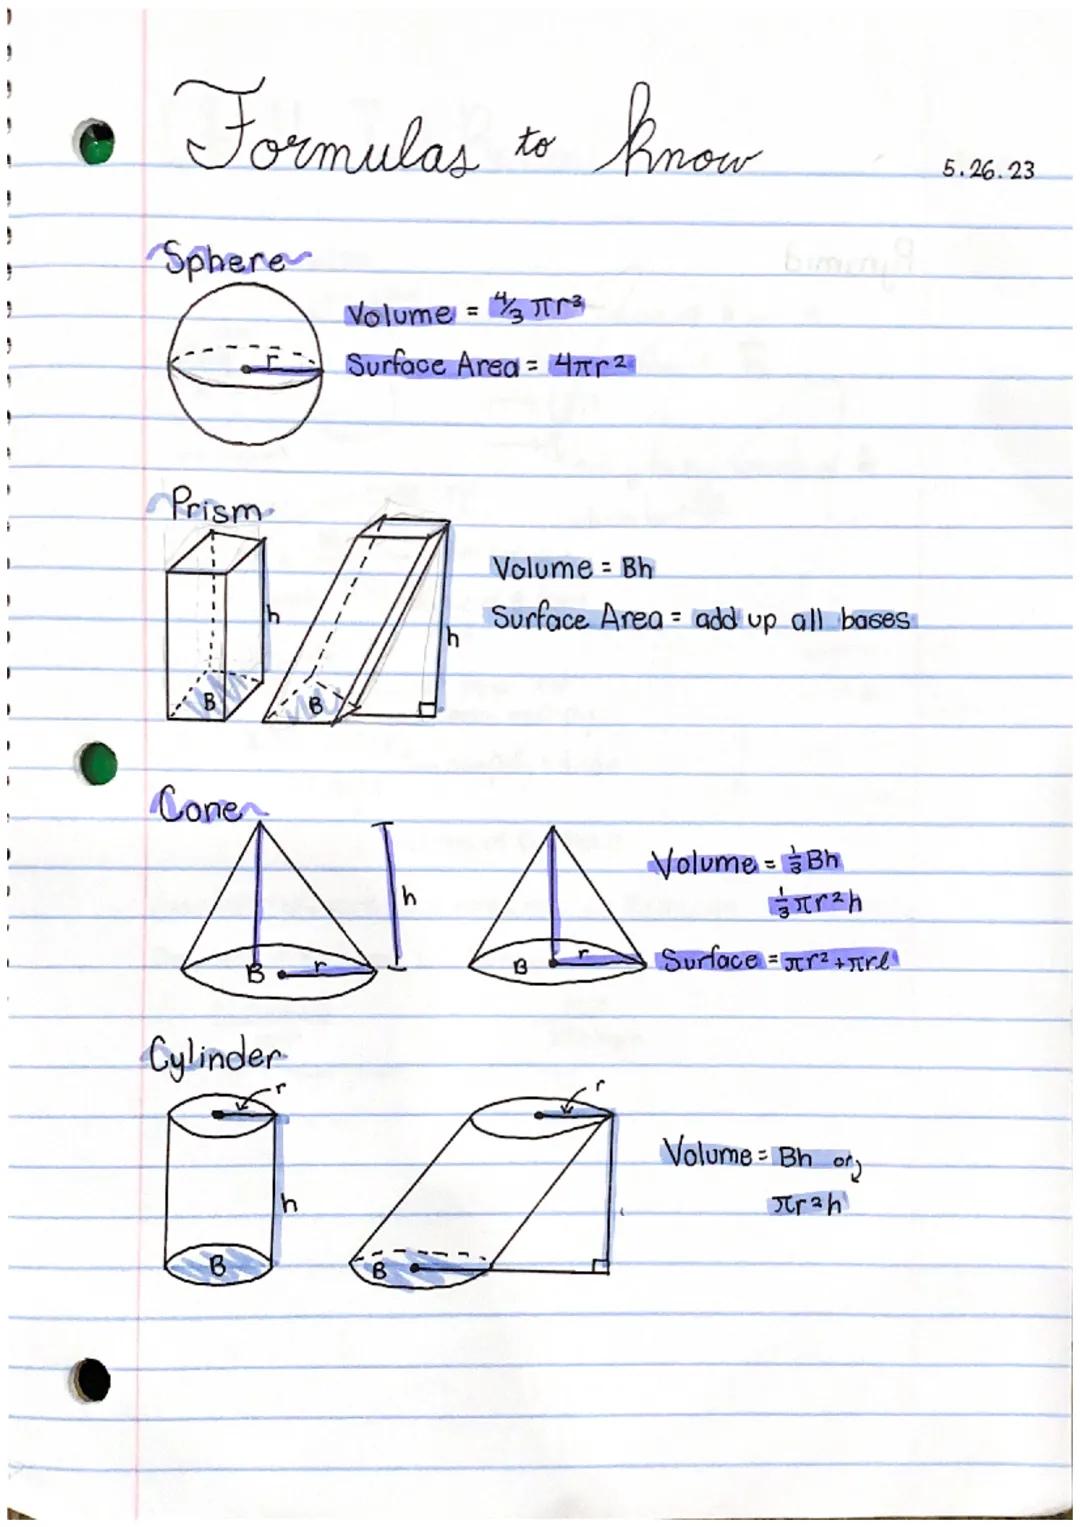 Formulas to know
5.26.23
Sphere
r
Volume = 4/3 πr³
Surface Area = 4πr²
Prism
h
B
h
B
Volume = Bh
Surface Area = add up all bases
Cone
h
B
r
B
r
Volume = ⅓Bh
⅓πr²h
Surface = πr² + πrl
Cylinder
r
h
B
r
B
Volume = Bh or
πr²h
Pyramid